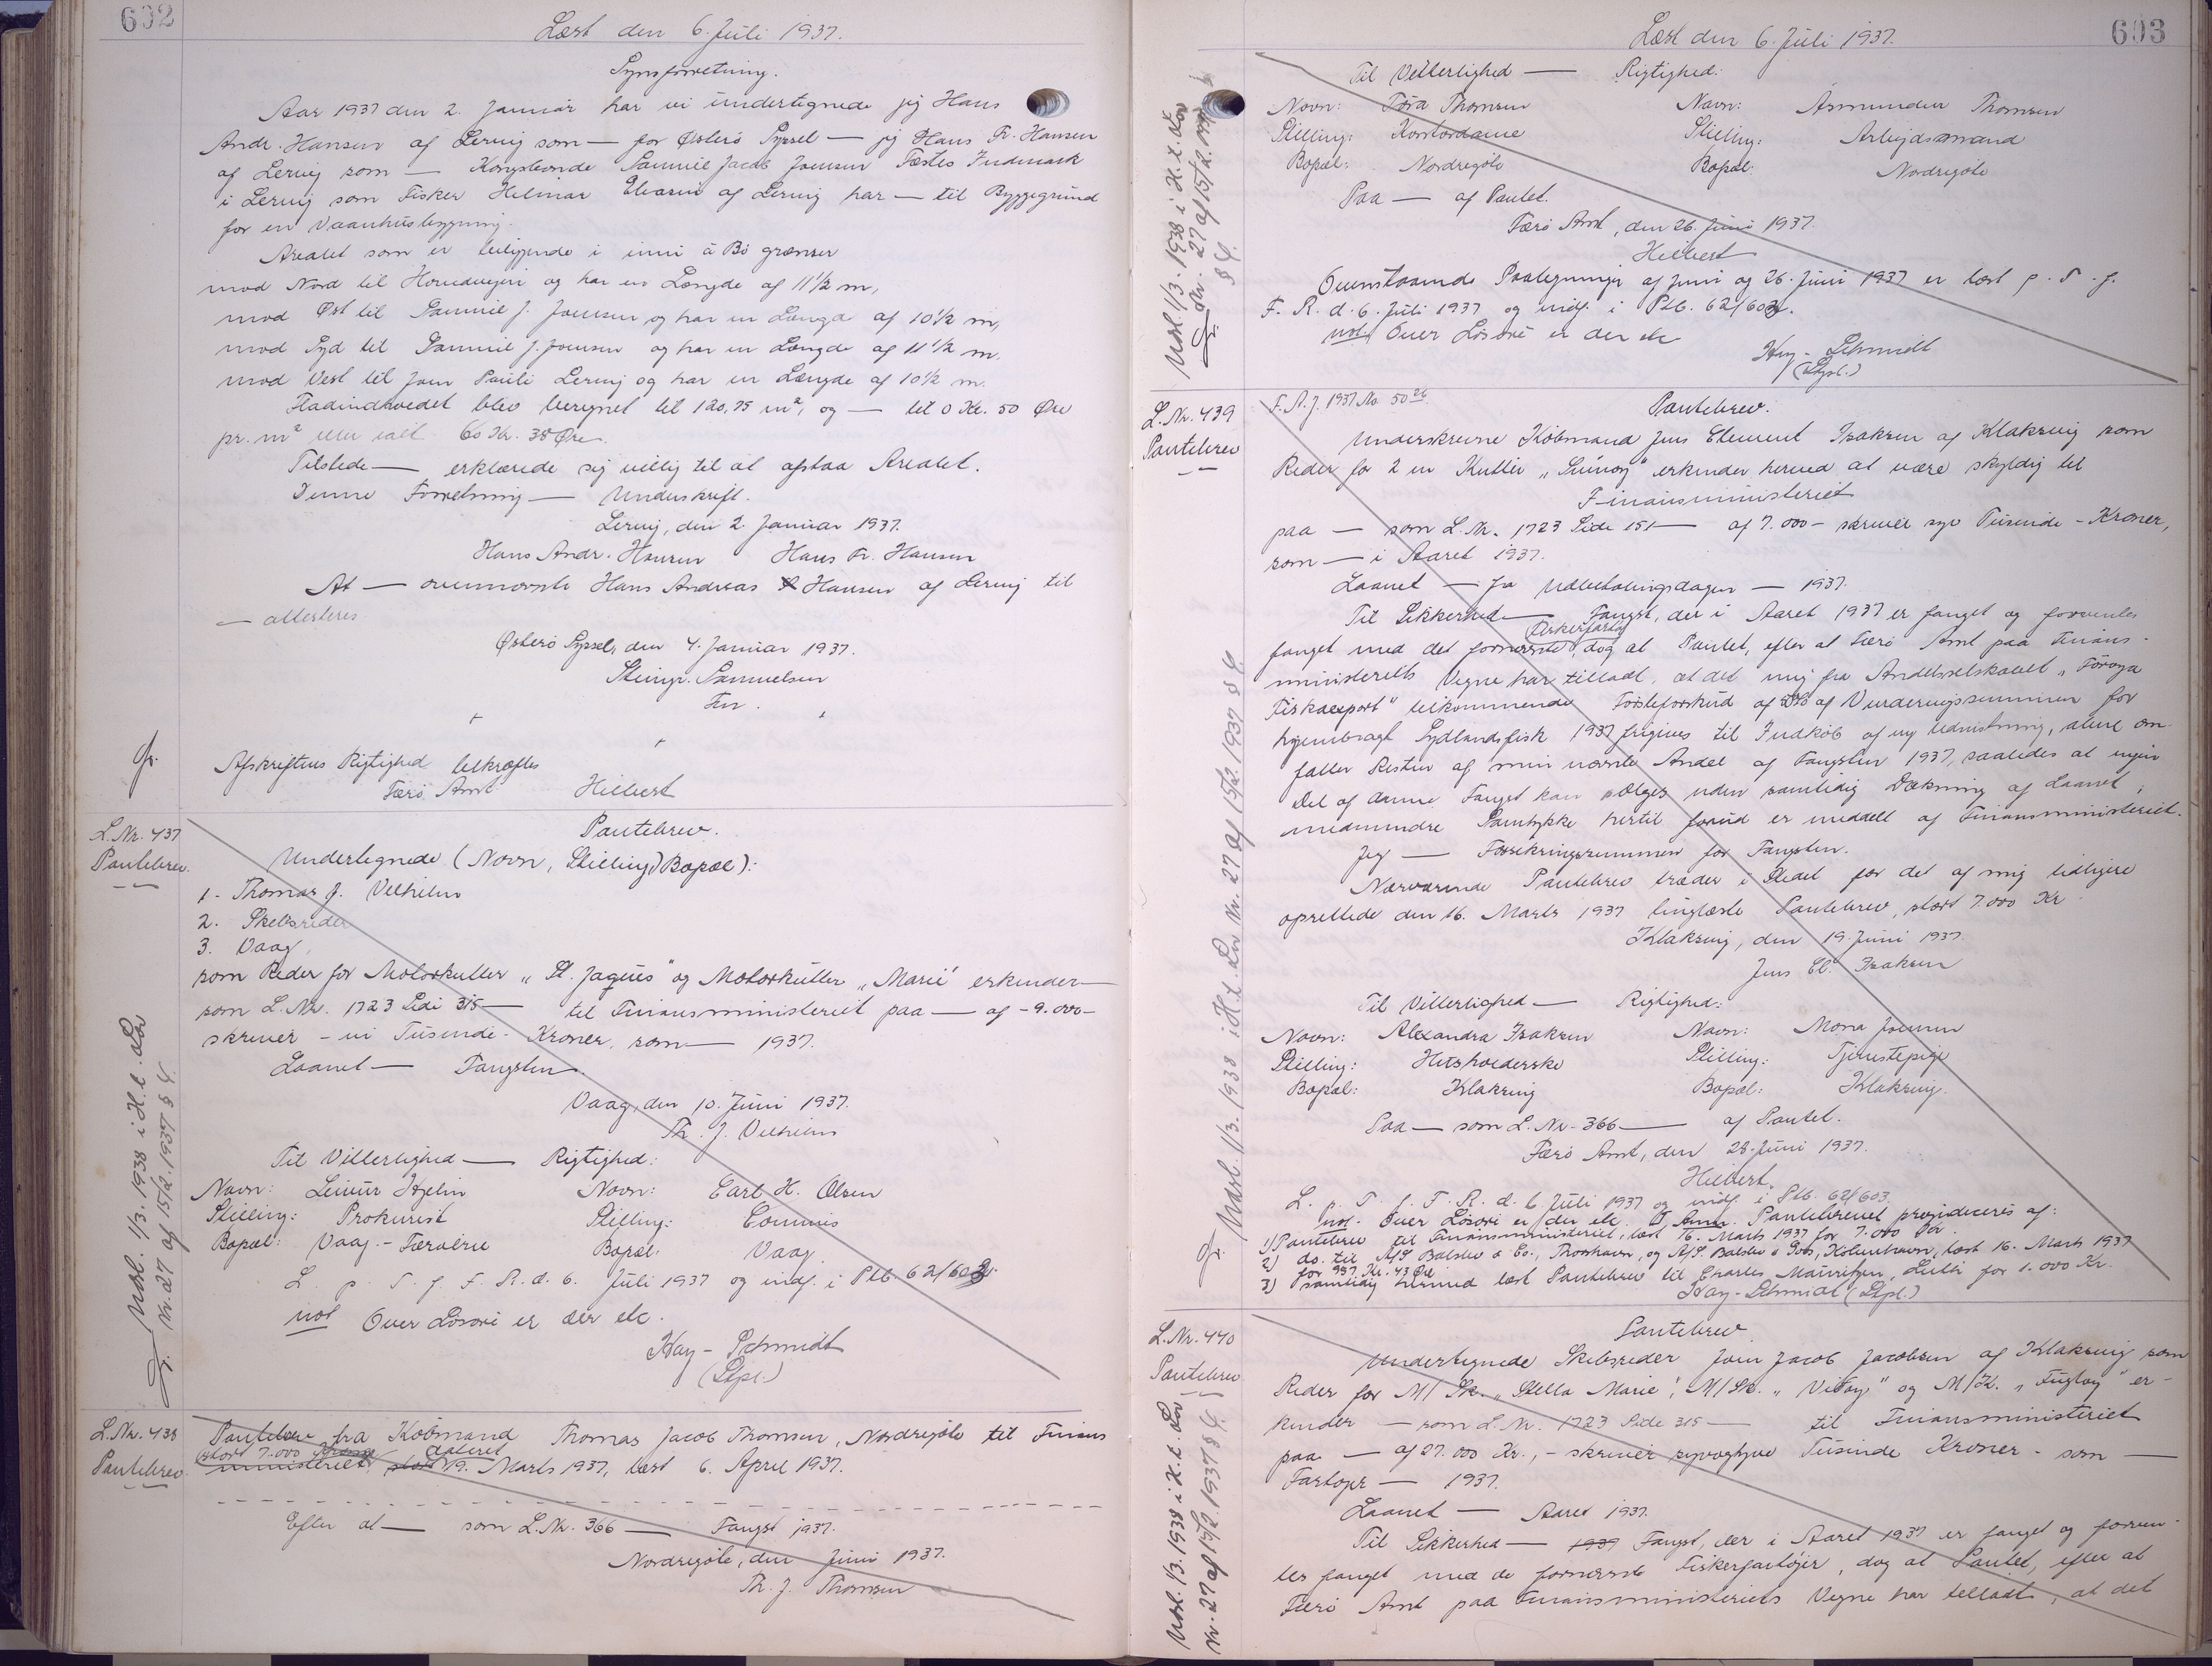 602
Læst den 6. Juli 1937.
Synsforretning.
Aar 1937 den 2. Januar har vi undertegnede jeg Hans
Andr. Hansen af Lervig som — for Østerø Syssel — jeg Hans Fr. Hansen
af Lervig som — Kongsbonde Samuel Jacob Joensen Fæstes Indmark
i Lervig som Fisker Hilmar Eliasen af Lervig har — til Byggegrund
for en Vaanhusbygning.
Arealet som er beliggende i inni á Bø grænser
mod Nord til Hovedvejen og har en Længde af 11½ m,
mod Øst til Samuel J. Joensen, og har en Længde af 10½ m,
mod Syd til Samuel J. Joensen og har en Længde af 11½ m.
mod Vest til Joen Pauli Lervig og har en Længde af 10½ m.
Fladindholdet blev beregnet til 120,75 m², og — til 0 Kr. 50 Øre
pr. m² eller ialt 60 Kr. 38 Øre.
Tilstede — erklærede sig villig til at afstaa Arealet.
Denne Forretning — Underskrift.
Lervig, den 2. Januar 1937.
Hans Andr. Hansen Hans Fr. Hansen
At — ovennævnte Hans Andreas Hansen af Lervig til
— attesteres.
Østerø Syssel, den 4. Januar 1937.
Steingr. Samuelsen
Fm.
Afskriftens Rigtighed bekræftes
Færø Amt Hilbert
L. Nr. 437
Pantebrev.
Pantebrev.
Undertegnede (Navn, Stilling, Bopæl):
1. Thomas J. Vilhelm
2. Skibsreder
3. Vaag,
som Reder for Motorkutter „St. Jaques" og Motorkutter „Marie" erkender —
som L. Nr. 1723 Side 315 — til Finansministeriet paa — af - 9.000 -
skriver - ni Tusinde - Kroner, som — 1937.
Laanet — Fangsten.
Vaag, den 10. Juni 1937.
Th. J. Vilhelm
Til Vitterlighed — Rigtighed:
Navn: Leivur Hjelm Navn: Carl H. Olsen
Stilling: Prokurist Stilling: Commis
Bopæl: Vaag - Færøerne Bopæl: Vaag
L. p. T. f. F. R. d. 6. Juli 1937 og indf. i Ptb. 62/602.
not Over Løsøre er der etc.
Kay - Schmidt
(Stpl.)
Udsl. 1/3. 1938 i H. t. Lov
Nr. 27 af 15/2. 1937 § 4.
L. Nr. 438
Pantebrev.
Pantebrev fra Købmand Thomas Jacob Thomsen, Nordregøte til Finans
ministeriet, stort 7.000 dateret 19. Marts 1937, læst 6. April 1937.
Efter at — som L. Nr. 366 — Fangst 1937.
Nordregøte, den Juni 1937.
Th. J. Thomsen
603
Læst den 6. Juli 1937.
Til Vitterlighed — Rigtighed:
Navn: Tóra Thomsen Navn: Ásmundur Thomsen
Stilling: Kontordame Stilling: Arbejdsmand
Bopæl: Nordregøte Bopæl: Nordregøte
Paa — af Pantet.
Færø Amt, den 26. Juni 1937.
Hilbert
Ovenstaaende Paategninger af Juni og 26. Juni 1937 er læst p. T. f.
F. R. d. 6. Juli 1937 og indf. i Ptb. 62/602.
not. Over Løsøre er der etc
Kay - Schmidt
(Stpl.)
Udsl. 1/3. 1938 i H. t. Lov
Nr. 27 af 15/2. 1937
§ 4.
L. Nr. 439
Pantebrev
F. A. J. 1937 No. 50
Pantebrev.
Underskrevne Købmand Jens Clement Isaksen af Klaksvig som
Reder for 2 m Kutter „Svinoy" erkender herved at være skyldig til
Finansministeriet
paa — som L. Nr. 1723 Side 151 — af 7.000 - skriver syv Tusinde - Kroner,
som — i Aaret 1937.
Laanet — fra Udbetalingsdagen — 1937.
Til Sikkerhed — Fangst, der i Aaret 1937 er fanget og forventes
fanget med det fornævnte Fiskerfartøj, dog at Pantet, efter at Færø Amt paa Finans-
ministeriets Vegne har tilladt, at det mig fra Andelsselskabet „Föroya
Fiskaexport" tilkommende Førsteforskud af af Vurderingssummen for
hjembragt Sydlandsfisk 1937 frigives til Indkøb af ny Udrustning, alene om-
fatter Resten af min nævnte Andel af Fangsten 1937, saaledes at ingen
Del af denne Fangst kan sælges uden samtidig Dækning af Laanet,
medmindre Samtykke hertil forud er meddelt af Finansministeriet.
Jeg — Forsikringssummen for Fangsten.
Nærværende Pantebrev træder i Stedet for det af mig tidligere
oprettede den 16. Marts 1937 tinglæste Pantebrev, stort 7.000 Kr.
Klaksvig, den 19. Juni 1937.
Jens Cl. Isaksen
Til Vitterlighed — Rigtighed:
Navn: Alexandra Isaksen Navn: Mona Joensen
Stilling: Husholderske Stilling: Tjenestepige
Bopæl: Klaksvig Bopæl: Klaksvig.
Paa — som L. Nr. 366 — af Pantet.
Færø Amt, den 28. Juni 1937.
Hilbert.
L. p. T. f. F. R. d. 6 Juli 1937 og indf. i Ptb. 62/603.
not. Over Løsøre er der etc. Anm. Pantebrevet præjudiceres af:
1) Pantebrev til Finansministeriet, læst 16. Marts 1937 for 7.000 Kr.
2) do. til A/S. Balslev & Co., Thorshavn, og A/S. Balslev & Co's, København, læst 16. Marts 1937
for 997 Kr. 43 Øre
3) samtidig hermed læst Pantebrev til Charles Mauritzen, Leith for 1.000 Kr.
Kay - Schmidt (Stpl.)
Udsl. 1/3. 1938 i H. t. Lov Nr. 27 af 15/2. 1937 § 4.
L. Nr. 440
Pantebrev
Pantebrev
Undertegnede Skibsreder Joen Jacob Jacobsen af Klaksvig som
Reder for M/Sk. „Stella Marie", M/Sk. „Vitoy" og M/K. „Fugloy" er-
kender — som L. Nr. 1723 Side 315 — til Finansministeriet
paa — af 27.000 Kr., - skriver syvogtyve Tusinde Kroner - som —
Fartøjer — 1937.
Laanet — Aaret 1937.
Til Sikkerhed — 1937 Fangst, der i Aaret 1937 er fanget og forven-
tes fanget med de fornævnte Fiskerfartøjer, dog at Pantet, efter at
Færø Amt paa Finansministeriets Vegne har tilladt, at det
Udsl. 1/3. 1938 i H. t. Lov
Nr. 27 af 15/2. 1937 § 4.